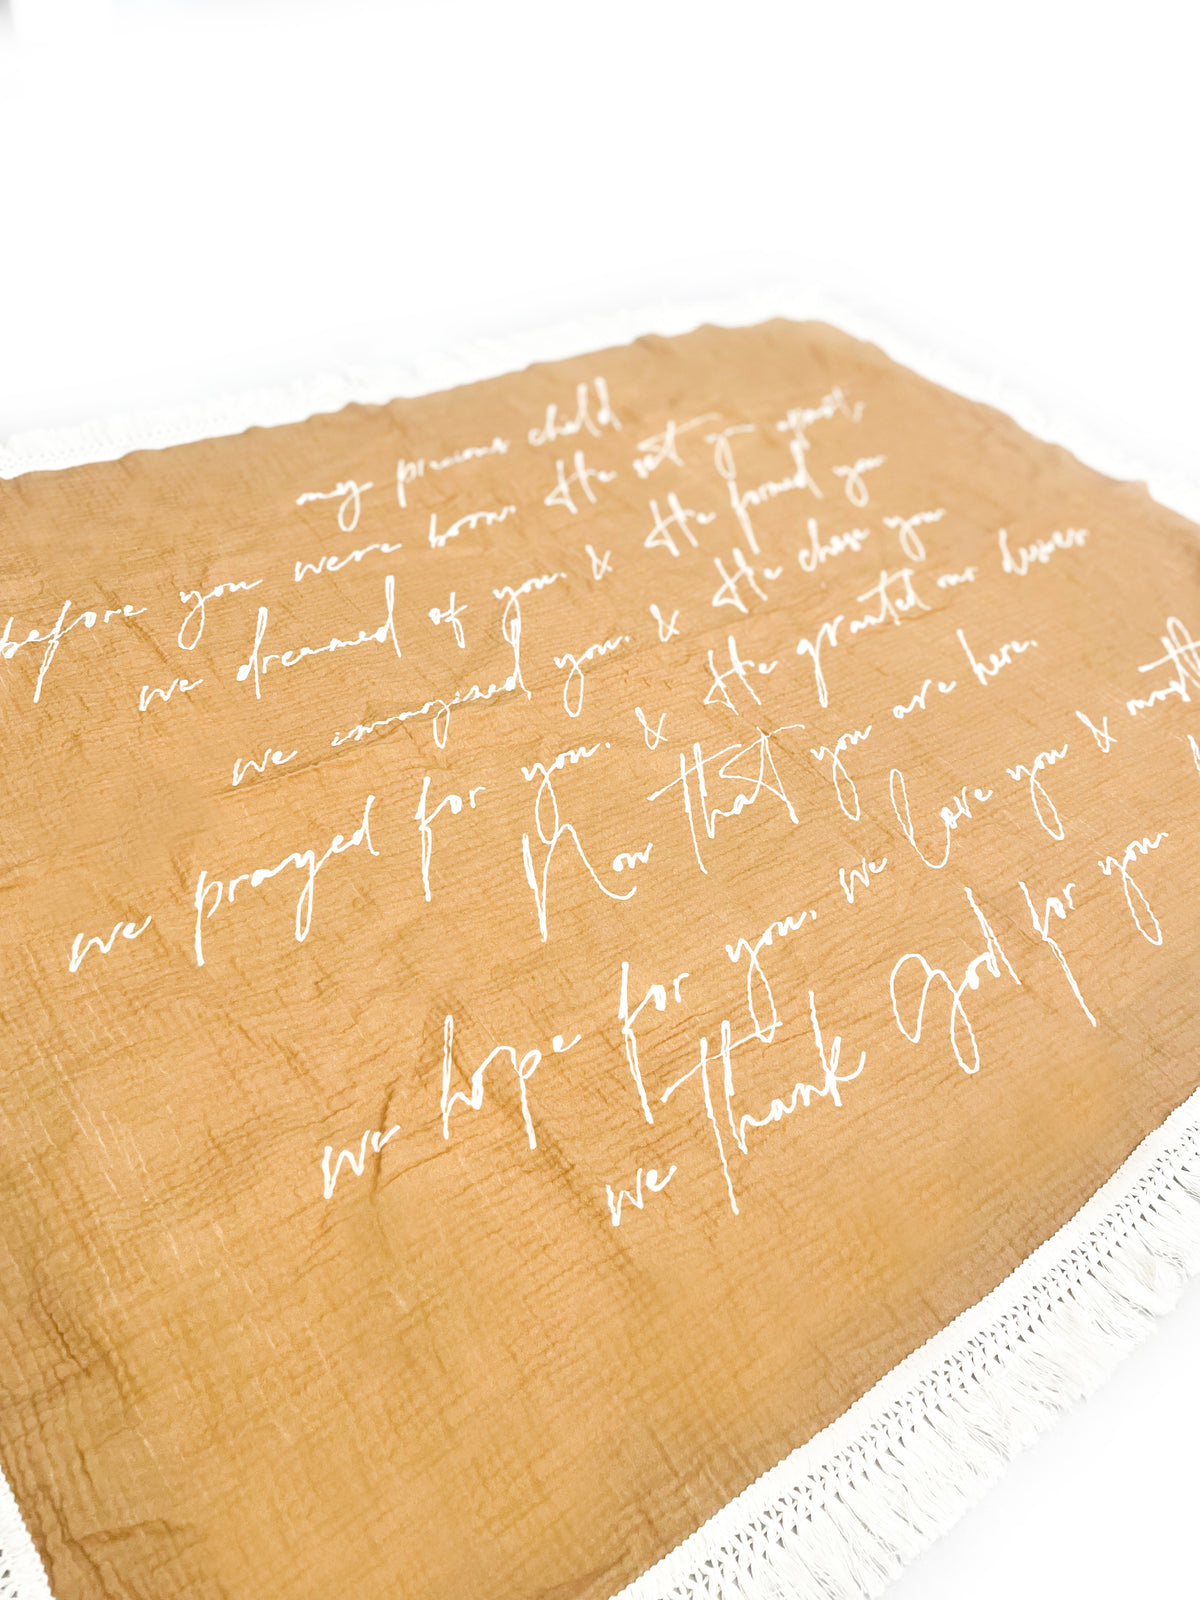 my precious child
before you were born. He set you apart,
we dreamed of you. & He formed you
we imagined you. & He chose you
we prayed for you. & He granted our desires.
Now that you are here.
we hope for you, we love you &
we thank God for you.